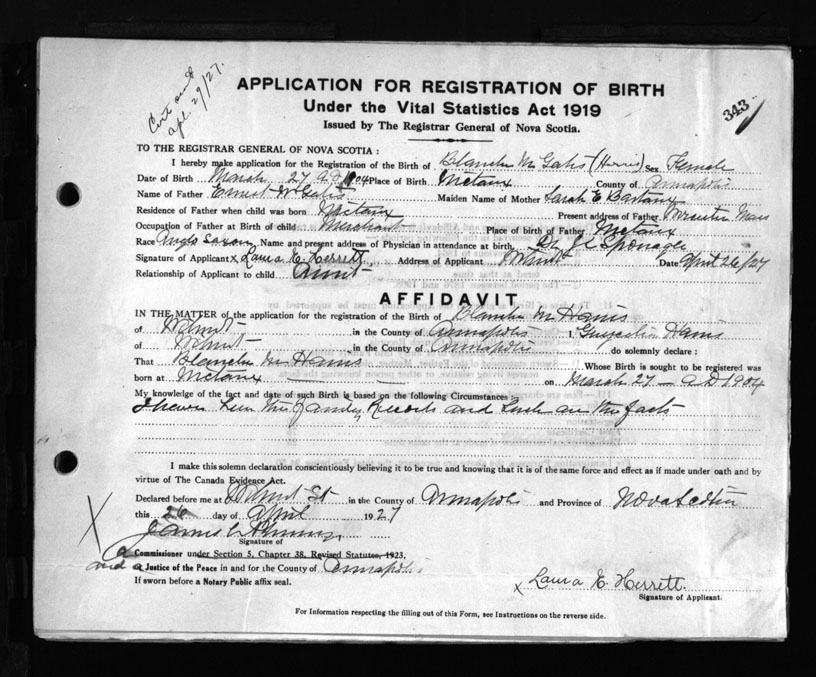 Apl. 29/27.
343
APPLICATION FOR REGISTRATION OF BIRTH
Under the Vital Statistics Act 1919
Issued by The Registrar General of Nova Scotia.
TO THE REGISTRAR GENERAL OF NOVA SCOTIA :
I hereby make application for the Registration of the Birth of Blanche M Gates (Harris) Sex Female
Date of Birth March 27 A.D. 1904 Place of Birth Nictaux County of Annapolis
Name of Father Ernest W Gates Maiden Name of Mother Sarah E
Residence of Father when child was born Nictaux Present address of Father Mass
Occupation of Father at Birth of child Merchant Place of birth of Father Nictaux
Race Anglo Saxon Name and present address of Physician in attendance at birth Sponagle
Signature of Applicant x Laura E. Herrett Address of Applicant Wilmot Date April 26/27
Relationship of Applicant to child Aunt
AFFIDAVIT
IN THE MATTER of the application for the registration of the Birth of Blanche M Harris
of Wilmot in the County of Annapolis I, Harris
of Wilmot in the County of Annapolis do solemnly declare :
That Blanche M Harris Whose Birth is sought to be registered was
born at Nictaux on March 27 - A.D 1904
My knowledge of the fact and date of such Birth is based on the following Circumstances :-
Family Records and are the facts
I make this solemn declaration conscientiously believing it to be true and knowing that it is of the same force and effect as if made under oath and by
virtue of The Canada Evidence Act.
Declared before me at Wilmot in the County of Annapolis and Province of Nova Scotia
this 26 day of April 1927
James
Signature of
a Commissioner under Section 5, Chapter 38, Revised Statutes, 1923,
and a Justice of the Peace in and for the County of Annapolis
If sworn before a Notary Public affix seal.
x Laura E. Herrett.
Signature of Applicant.
For Information respecting the filling out of this Form, see Instructions on the reverse side.